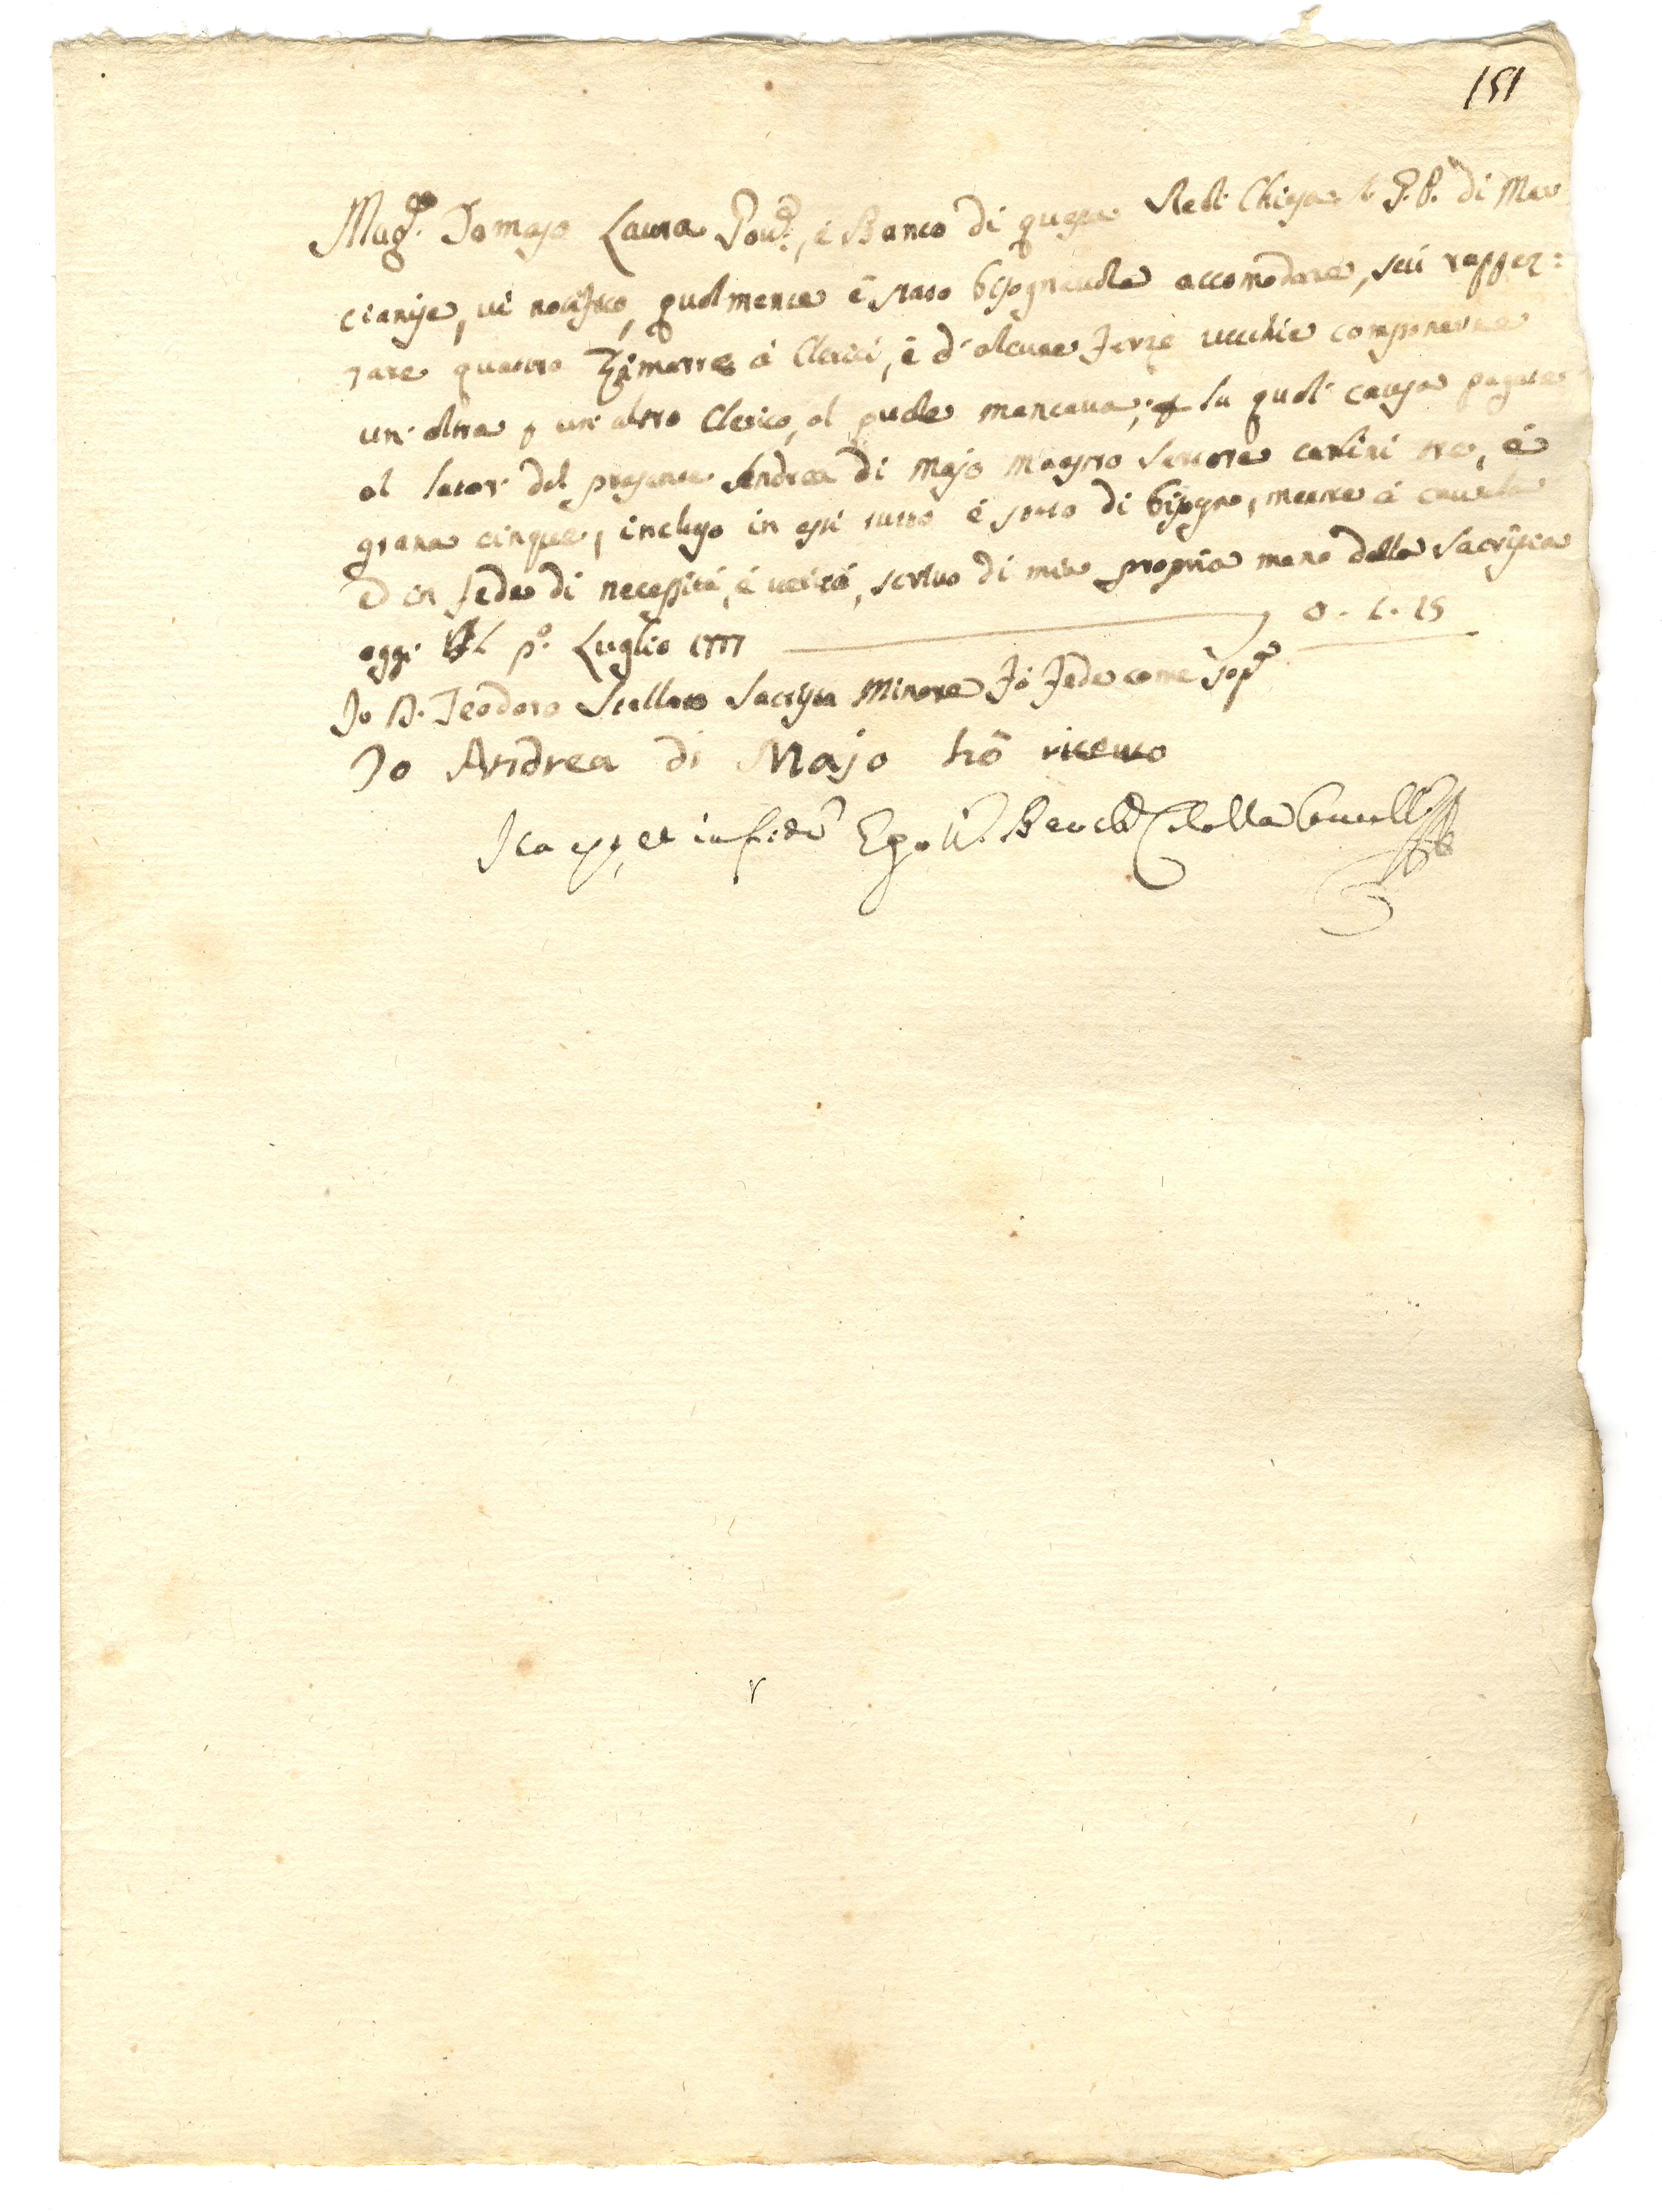 151
Mag.co Tomaso Laura Proc.re, e Banco di questa Real Chiesa di S. P. di Mer
cianise, vi notifico, qualmente è stato bisognevole accomodare, seu reppez:
zare quattro Zimarre à Clerici, e d'alcune Terze vecchie componerne
un' altra p un' altro Clerico, al quale mancava; p la qual causa pagate
al lator del presente Andrea di Majo Mastro Sartore carlini tre, é
grana cinque, incluso in essi tutto è stato di bisogno, mentre à cautela
e in fede di necessità, é verità, scrivo di mia propria mano dalla Sacristia
oggi li p.o Luglio 1777 0 - 1 - 15
Io D. Teodoro Scellato Sacrista Minore fò fede come sop.a
Io Andrea di Majo hò riceuto
Ita est, et in fidem Ego